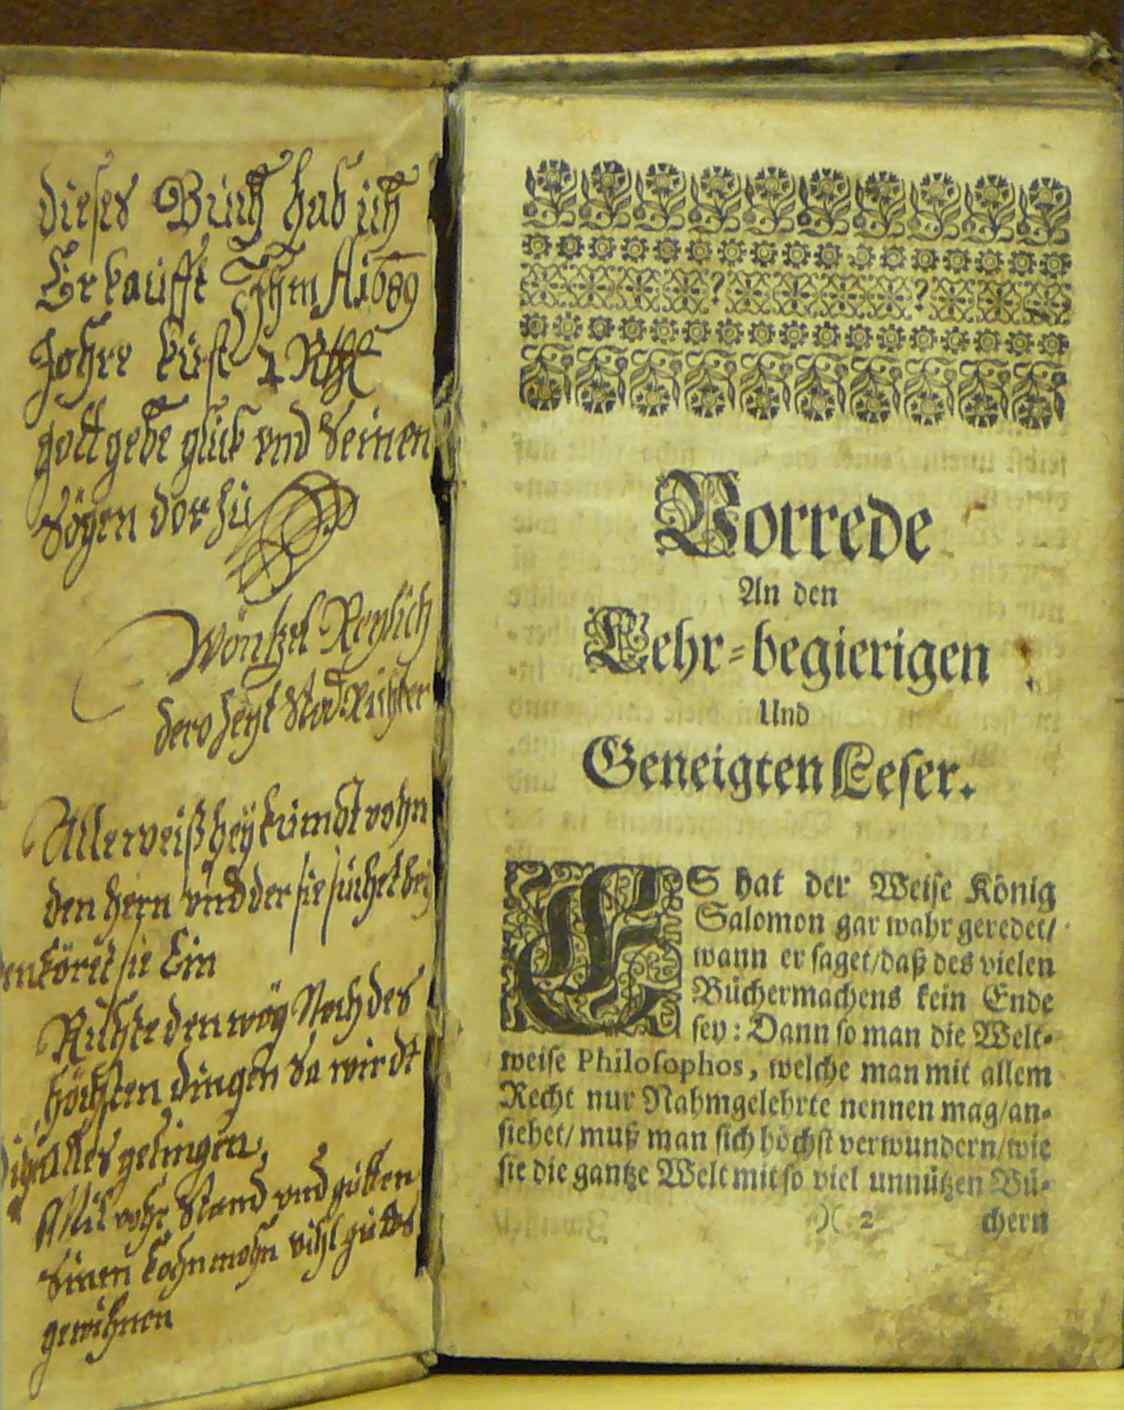 dieses Buch hab ich
Erkaufft Ihm A 1689
Johre kust 4 Rthl
gott gebe glük vnd Seinen
Sögen dorzu
Wöntzel Reylich
dero Zeyt Stod Richter
Alle weißheÿ kümbt vohn
den hern vnd der sie suchet
sie Ein
Richte den wög Noch des
höchsten dingen So wirdt
alles gelingen,
Mit vohr Stand vnd gutten
Sinen kohn mohn vihl guttes
gewihnen
Vorrede
An den
Lehr-begierigen
Und
Geneigten Leser.
ES hat der Weise König
Salomon gar wahr geredet/
wann er saget/daß des vielen
Büchermachens kein Ende
sey: Dann so man die Welt-
weise Philosophos, welche man mit allem
Recht nur Nahmgelehrte nennen mag/an-
siehet/ muß man sich höchst verwundern/wie
sie die gantze Welt mit so viel unnützen Bü-
)( 2 chern